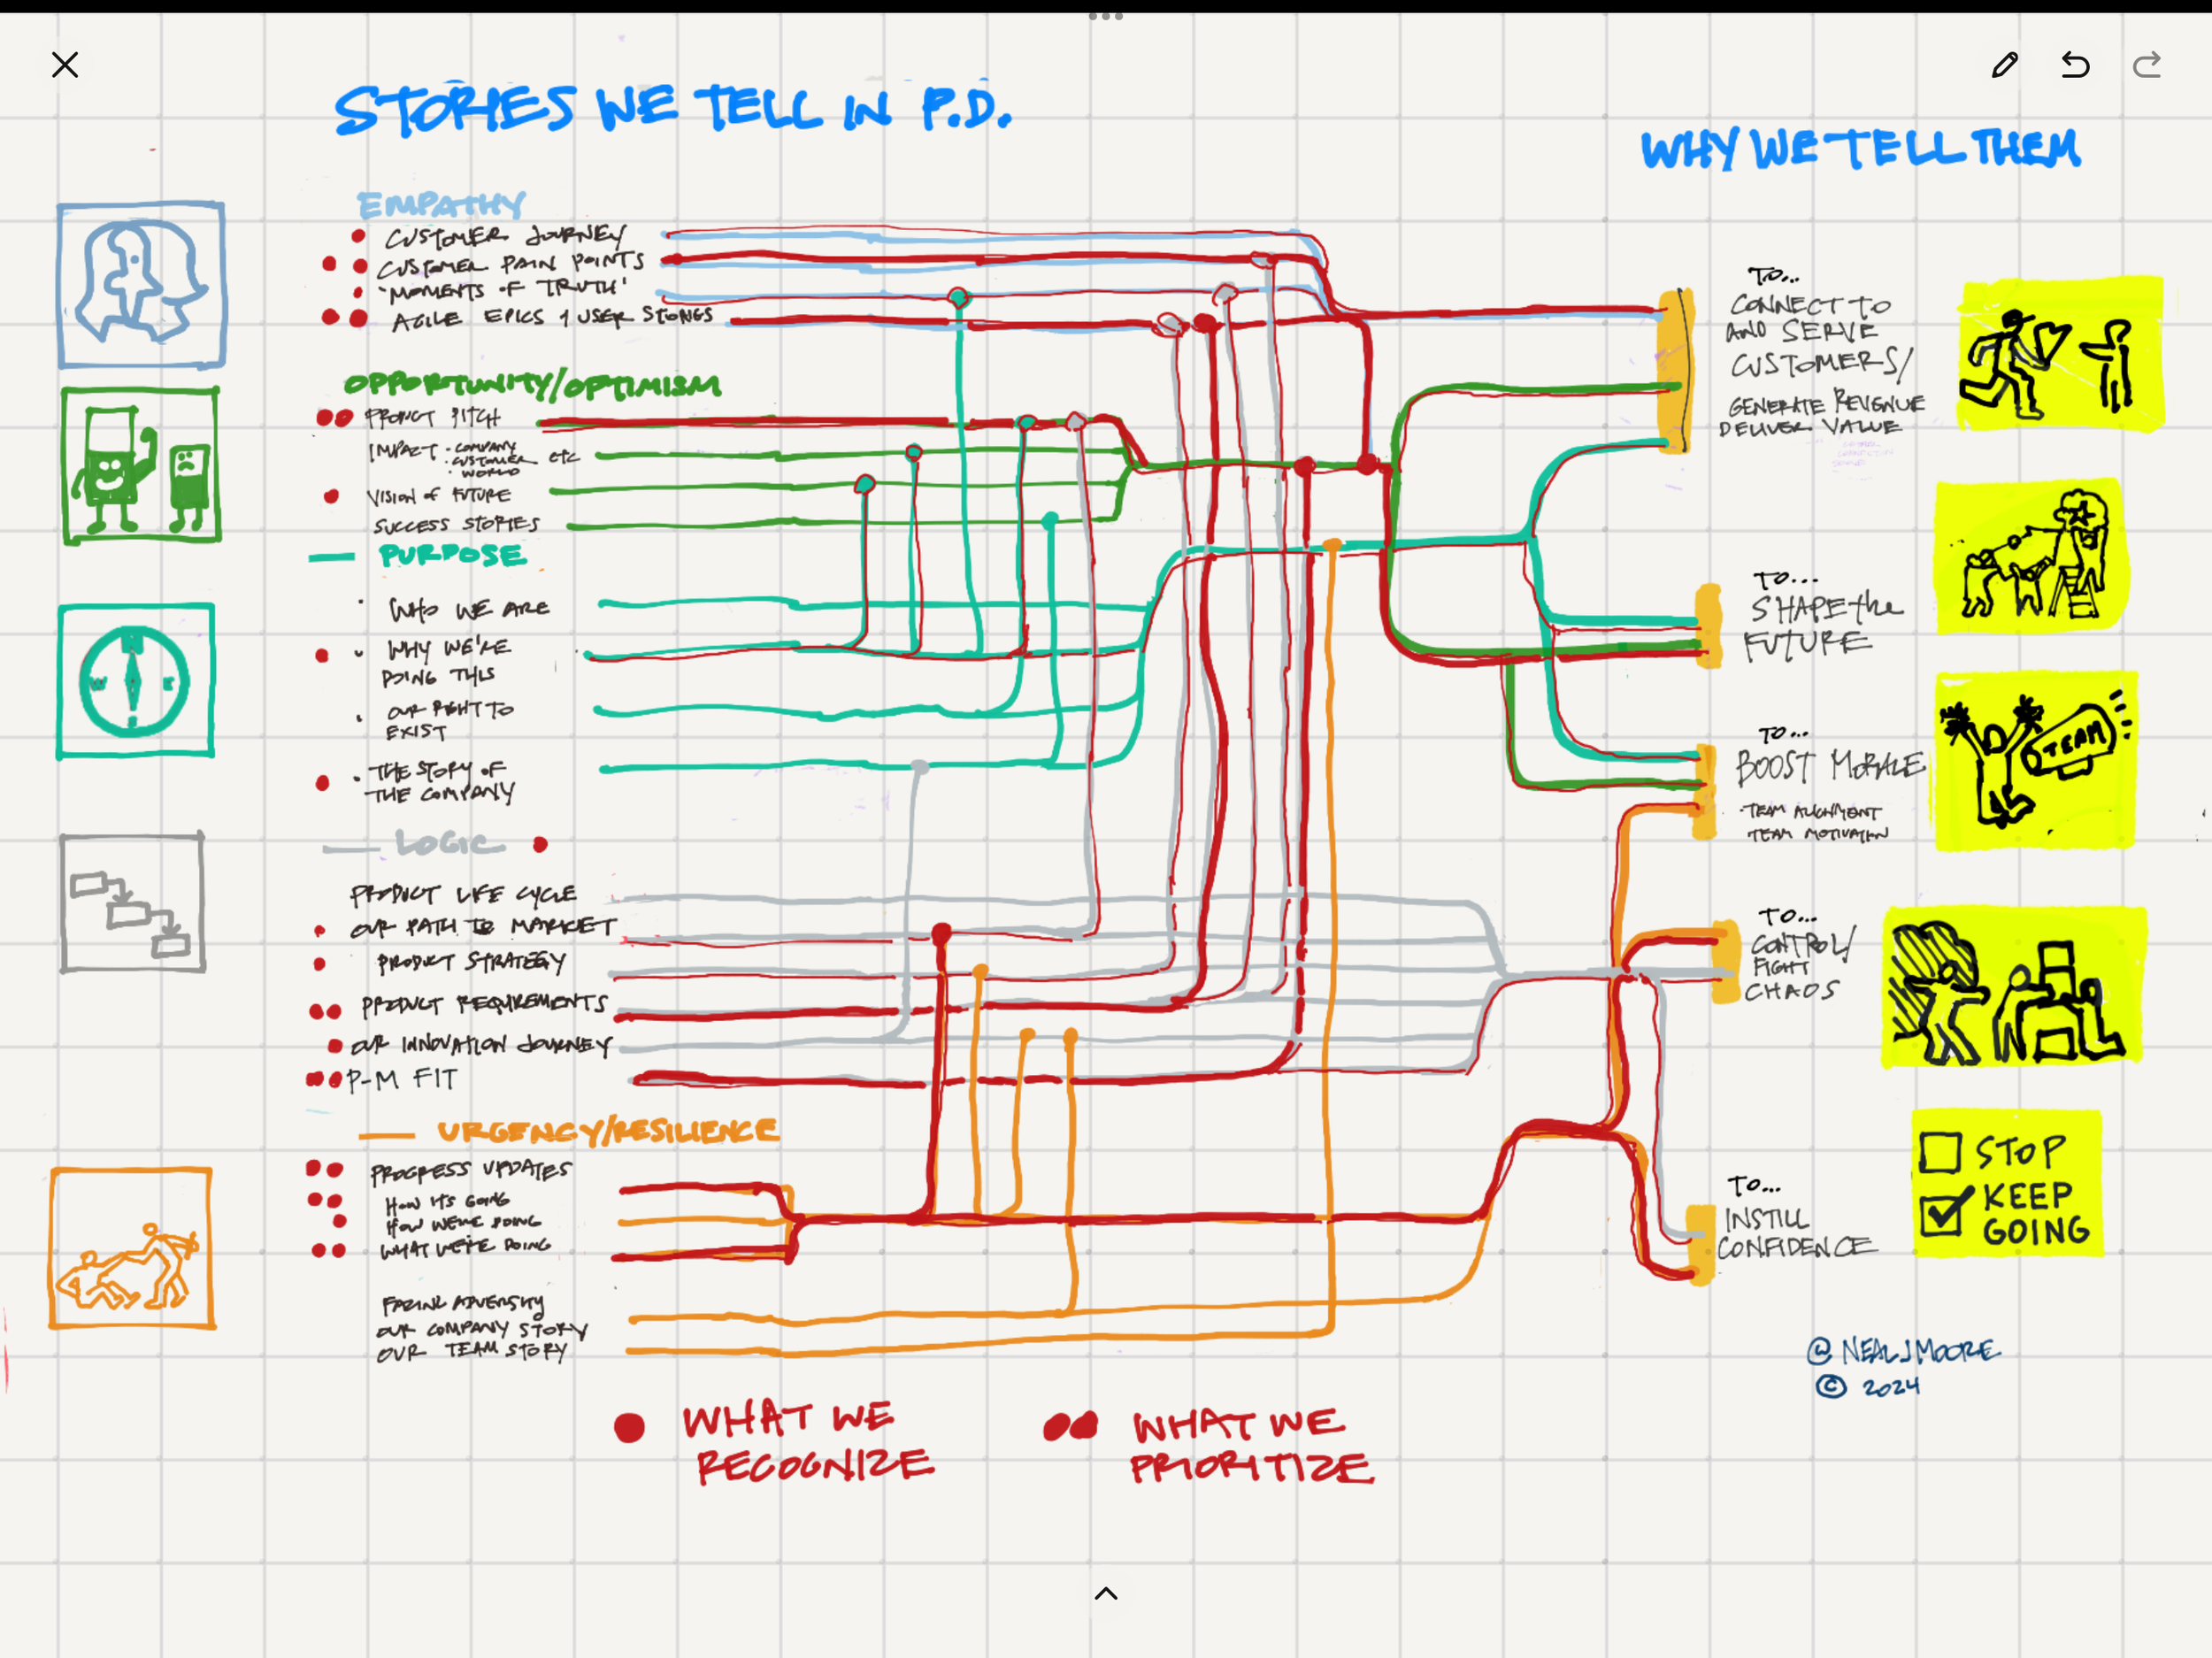 STORIES WE TELL IN P.D.
WHY WE TELL THEM
EMPATHY
CUSTOMER JOURNEY
CUSTOMER PAIN POINTS
"MOMENTS OF TRUTH"
AGILE EPICS / USER STORIES
OPPORTUNITY/OPTIMISM
PRODUCT PITCH
IMPACT · COMPANY
· CUSTOMER etc
· WORLD
VISION OF FUTURE
SUCCESS STORIES
PURPOSE
WHO WE ARE
WHY WE'RE
DOING THIS
OUR RIGHT TO
EXIST
THE STORY OF
THE COMPANY
LOGIC
PRODUCT LIFE CYCLE
OUR PATH TO MARKET
PRODUCT STRATEGY
PRODUCT REQUIREMENTS
OUR INNOVATION JOURNEY
P-M FIT
URGENCY/RESILIENCE
PROGRESS UPDATES
HOW ITS GOING
HOW WE'RE DOING
WHAT WE'RE DOING
FACING ADVERSITY
OUR COMPANY STORY
OUR TEAM STORY
WHAT WE
RECOGNIZE
WHAT WE
PRIORITIZE
TO...
CONNECT TO
AND SERVE
CUSTOMERS/
GENERATE REVENUE
DELIVER VALUE
TO...
SHAPE the
FUTURE
TO...
BOOST MORALE
· TEAM ALIGNMENT
TEAM MOTIVATION
TEAM
TO...
CONTROL/
FIGHT
CHAOS
TO...
INSTILL
CONFIDENCE
STOP
KEEP
GOING
@NEALJMOORE
© 2024
W E